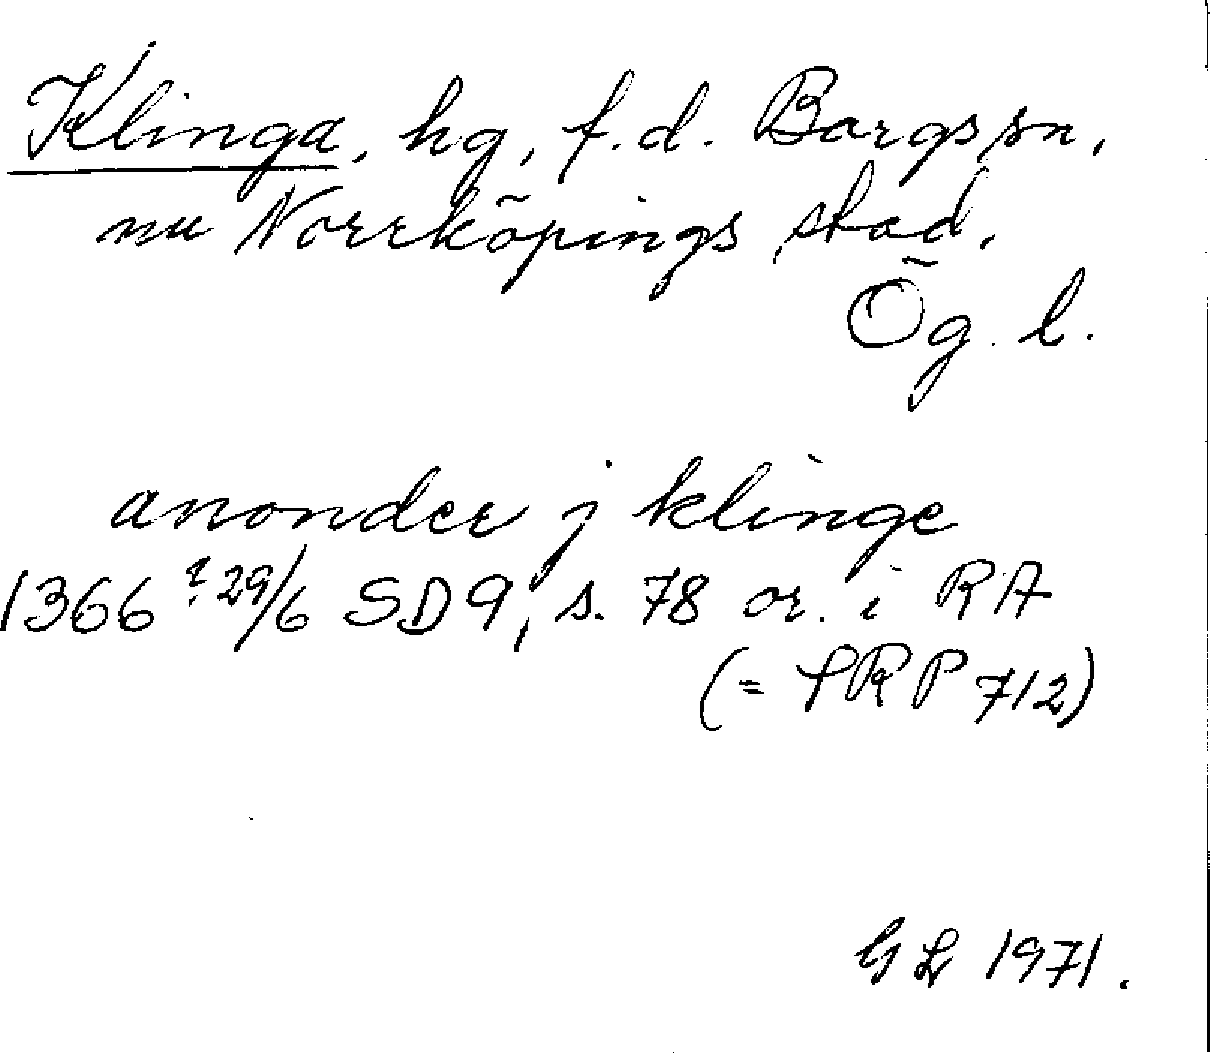 Klinga, hg, f.d. Borgs sn,
nu Norrköpings stad,
Ög. l.
anonder j klinge
1366 ? 29/6 SD 9, s. 78 or. i RA
(= SRP 712)
GL 1971.